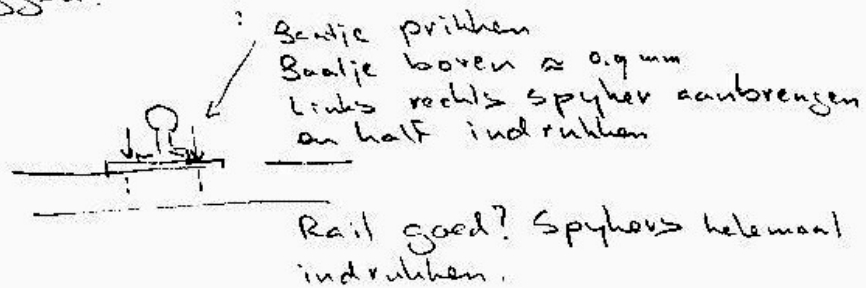 :
Gaatje prikken
Gaatje boren ≈ 0.9 mm
Links rechts spyker aanbrengen
en half indrukken
Rail goed? Spykers helemaal
indrukken.